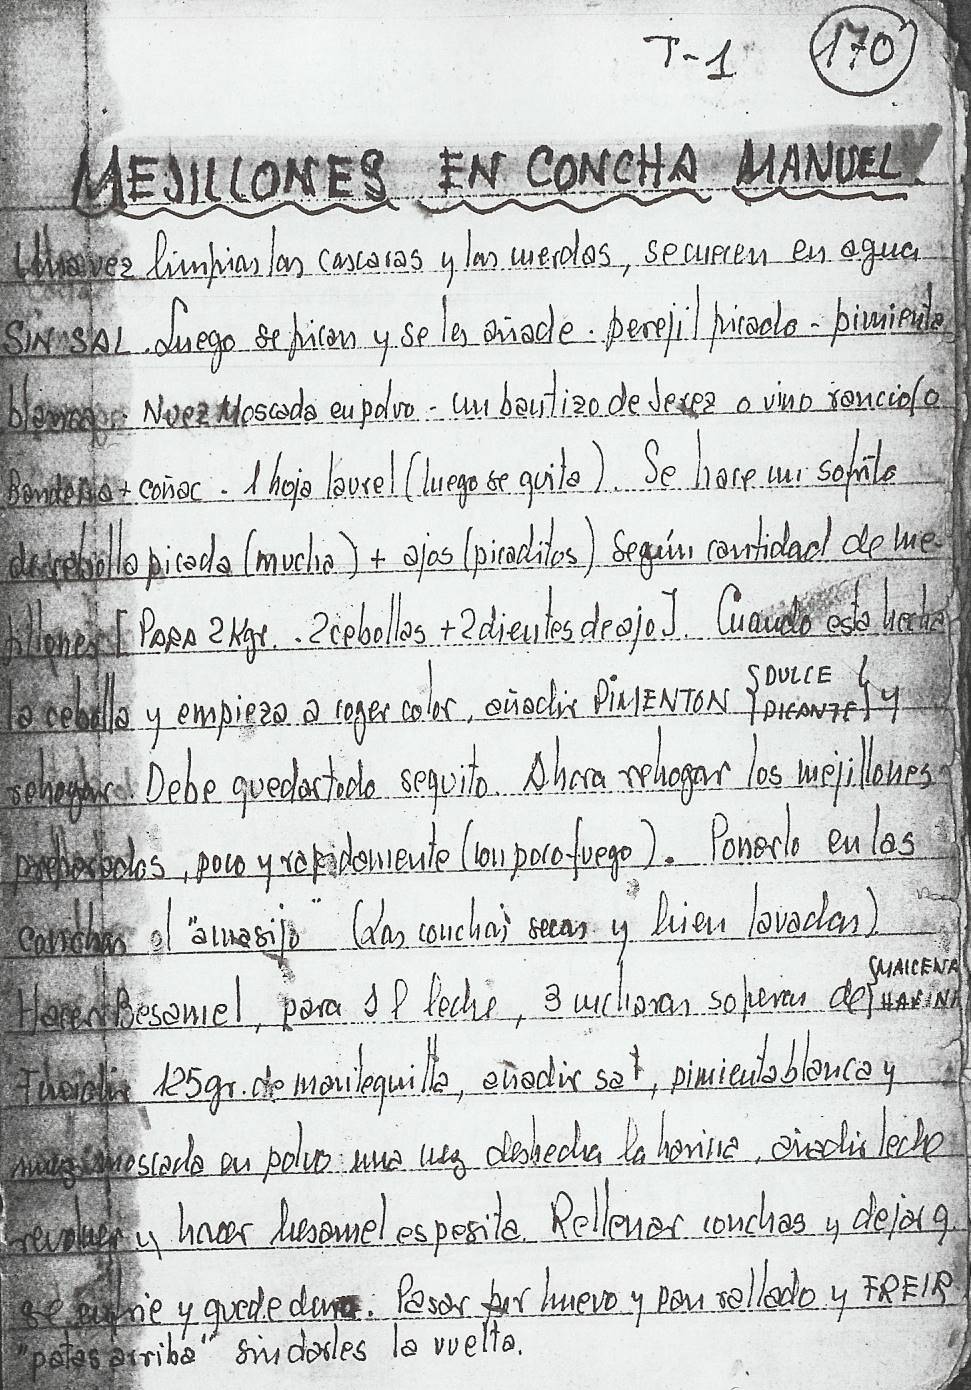 T-1 170
MEJILLONES EN CONCHA MANUEL.
Una vez limpias las cascaras y las merdas, se cuecen en agua
SIN SAL. Luego se pican y se les añade. perejil picado - pimienta
blanca. Nuez Moscada en polvo - un bautizo de Jerez o vino rancio/o
+ coñac. 1 hoja laurel (luego se quita). Se hace un sofrito
de cebolla picada (mucha) + ajos (picaditos) Según cantidad de me-
jillones [PARA 2 Kgr. . 2 cebollas + 2 dientes de ajo]. Cuando esta hecha
la cebolla y empieza a coger color, añadir PIMENTON { DULCE
PICANTE } y
rehogar. Debe quedar todo sequito. Ahora rehogar los mejillones
preparados, poco y rapidamente (con poco fuego). Ponerlo en las
conchas el "amasijo" (Las conchas secas y bien lavadas)
Hacer Besamel, para 1 l leche, 3 cucharas soperas de { MAICENA
HARINA
Fundir 125 gr. de mantequilla, añadir sal, pimienta blanca y
nuez moscada en polvo una vez deshecha la harina, añadir leche
revolver y hacer besamel espesita. Rellenar conchas y dejar q.
se enfrie y quede dura. Pasar por huevo y pan rallado y FREIR
"patas arriba" sin darles la vuelta.